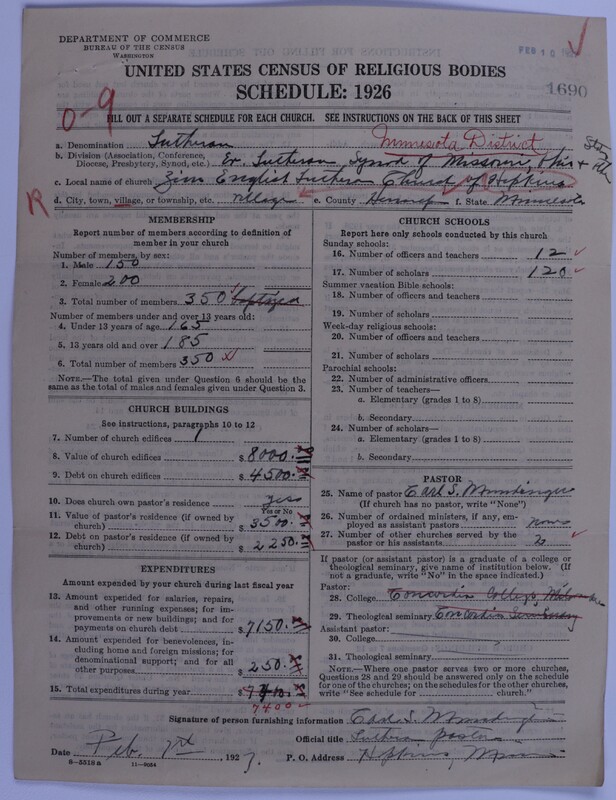 DEPARTMENT OF COMMERCE
BUREAU OF THE CENSUS
WASHINGTON
FEB 10
1690
UNITED STATES CENSUS OF RELIGIOUS BODIES
SCHEDULE: 1926
0-9
FILL OUT A SEPARATE SCHEDULE FOR EACH CHURCH. SEE INSTRUCTIONS ON THE BACK OF THIS SHEET
a. Denomination Lutheran Minnesota District
b. Division (Association, Conference, Diocese, Presbytery, Synod, etc.) Ev. Lutheran Synod of Missouri, Ohio +
c. Local name of church Zion English Lutheran Church of Hopkins
R
d. City, town, village, or township, etc. village e. County Hennepin f. State Minnesota
MEMBERSHIP
Report number of members according to definition of member in your church
Number of members, by sex:
1. Male 150
2. Female 200
3. Total number of members 350 baptized
Number of members under and over 13 years old:
4. Under 13 years of age 165
5. 13 years old and over 185
6. Total number of members 350
NOTE.—The total given under Question 6 should be the same as the total of males and females given under Question 3.
CHURCH BUILDINGS
See instructions, paragraphs 10 to 12
7. Number of church edifices 1
8. Value of church edifices $ 8000.
9. Debt on church edifices $ 4500.
10. Does church own pastor's residence yes
Yes or No
11. Value of pastor's residence (if owned by church) $ 3500.
12. Debt on pastor's residence (if owned by church) $ 2250.
EXPENDITURES
Amount expended by your church during last fiscal year
13. Amount expended for salaries, repairs, and other running expenses; for improvements or new buildings; and for payments on church debt $ 7150.
14. Amount expended for benevolences, including home and foreign missions; for denominational support; and for all other purposes $ 250.
15. Total expenditures during year $
7400
CHURCH SCHOOLS
Report here only schools conducted by this church
Sunday schools:
16. Number of officers and teachers 12
17. Number of scholars 120
Summer vacation Bible schools:
18. Number of officers and teachers
19. Number of scholars
Week-day religious schools:
20. Number of officers and teachers
21. Number of scholars
Parochial schools:
22. Number of administrative officers
23. Number of teachers—
a. Elementary (grades 1 to 8)
b. Secondary
24. Number of scholars—
a. Elementary (grades 1 to 8)
b. Secondary
PASTOR
25. Name of pastor Carl S. Mundinger
(If church has no pastor, write "None")
26. Number of ordained ministers, if any, employed as assistant pastors none
27. Number of other churches served by the pastor or his assistants
If pastor (or assistant pastor) is a graduate of a college or theological seminary, give name of institution below. (If not a graduate, write "No" in the space indicated.)
Pastor:
28. College Concordia College, Milwaukee
29. Theological seminary Concordia Seminary
Assistant pastor:
30. College
31. Theological seminary
NOTE.—Where one pastor serves two or more churches, Questions 28 and 29 should be answered only on the schedule for one of the churches; on the schedules for the other churches, write "See schedule for church."
Signature of person furnishing information Carl S. Mundinger
Official title Lutheran pastor
Date Feb. 2nd 1927. P. O. Address Hopkins, Minn
8-5318a 11-9054